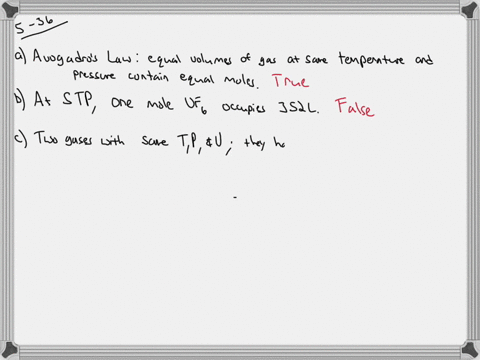 5-36
a) Avogadro's Law: equal volumes of gas at same temperature and
pressure contain equal moles. True
b) At STP, one mole UF6 occupies 352L. False
c) Two gases with same T, P, & V; they ha